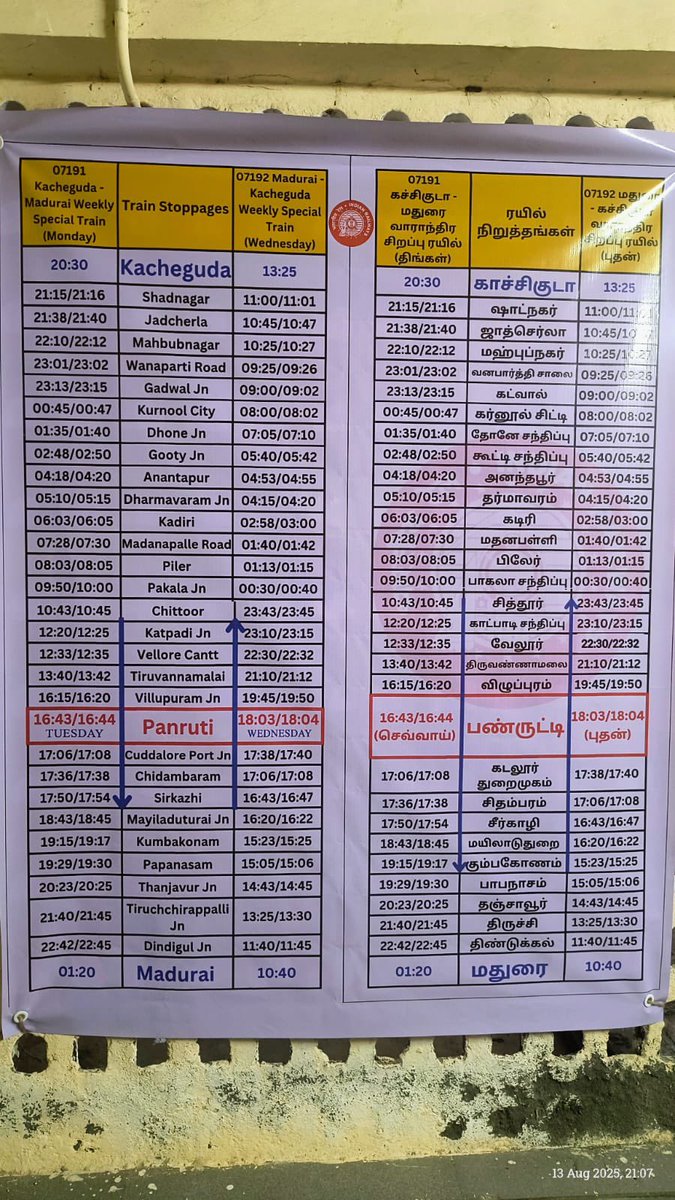 07191
Kacheguda -
Madurai Weekly
Special Train
(Monday)
Train Stoppages
07192 Madurai -
Kacheguda
Weekly Special
Train
(Wednesday)
20:30 Kacheguda 13:25
21:15/21:16 Shadnagar 11:00/11:01
21:38/21:40 Jadcherla 10:45/10:47
22:10/22:12 Mahbubnagar 10:25/10:27
23:01/23:02 Wanaparti Road 09:25/09:26
23:13/23:15 Gadwal Jn 09:00/09:02
00:45/00:47 Kurnool City 08:00/08:02
01:35/01:40 Dhone Jn 07:05/07:10
02:48/02:50 Gooty Jn 05:40/05:42
04:18/04:20 Anantapur 04:53/04:55
05:10/05:15 Dharmavaram Jn 04:15/04:20
06:03/06:05 Kadiri 02:58/03:00
07:28/07:30 Madanapalle Road 01:40/01:42
08:03/08:05 Piler 01:13/01:15
09:50/10:00 Pakala Jn 00:30/00:40
10:43/10:45 Chittoor 23:43/23:45
12:20/12:25 Katpadi Jn 23:10/23:15
12:33/12:35 Vellore Cantt 22:30/22:32
13:40/13:42 Tiruvannamalai 21:10/21:12
16:15/16:20 Villupuram Jn 19:45/19:50
16:43/16:44 Panruti 18:03/18:04
TUESDAY WEDNESDAY
17:06/17:08 Cuddalore Port Jn 17:38/17:40
17:36/17:38 Chidambaram 17:06/17:08
17:50/17:54 Sirkazhi 16:43/16:47
18:43/18:45 Mayiladuturai Jn 16:20/16:22
19:15/19:17 Kumbakonam 15:23/15:25
19:29/19:30 Papanasam 15:05/15:06
20:23/20:25 Thanjavur Jn 14:43/14:45
21:40/21:45 Tiruchchirappalli 13:25/13:30
Jn
22:42/22:45 Dindigul Jn 11:40/11:45
01:20 Madurai 10:40
07191
கச்சிகுடா -
மதுரை
வாராந்திர
சிறப்பு ரயில்
(திங்கள்)
ரயில்
நிறுத்தங்கள்
07192 மதுரை
- கச்சிகுடா
வாராந்திர
சிறப்பு ரயில்
(புதன்)
20:30 காச்சிகுடா 13:25
21:15/21:16 ஷாட்நகர் 11:00/11:01
21:38/21:40 ஜாத்செர்லா 10:45/10:47
22:10/22:12 மஹ்புப்நகர் 10:25/10:27
23:01/23:02 வனபார்த்தி சாலை 09:25/09:26
23:13/23:15 கட்வால் 09:00/09:02
00:45/00:47 கர்னூல் சிட்டி 08:00/08:02
01:35/01:40 தோனே சந்திப்பு 07:05/07:10
02:48/02:50 கூட்டி சந்திப்பு 05:40/05:42
04:18/04:20 அனந்தபூர் 04:53/04:55
05:10/05:15 தர்மாவரம் 04:15/04:20
06:03/06:05 கடிரி 02:58/03:00
07:28/07:30 மதனபள்ளி 01:40/01:42
08:03/08:05 பிலேர் 01:13/01:15
09:50/10:00 பாகலா சந்திப்பு 00:30/00:40
10:43/10:45 சித்தூர் 23:43/23:45
12:20/12:25 காட்பாடி சந்திப்பு 23:10/23:15
12:33/12:35 வேலூர் 22:30/22:32
13:40/13:42 திருவண்ணாமலை 21:10/21:12
16:15/16:20 விழுப்புரம் 19:45/19:50
16:43/16:44 பண்ருட்டி 18:03/18:04
(செவ்வாய்) (புதன்)
17:06/17:08 கடலூர் 17:38/17:40
துறைமுகம்
17:36/17:38 சிதம்பரம் 17:06/17:08
17:50/17:54 சீர்காழி 16:43/16:47
18:43/18:45 மயிலாடுதுறை 16:20/16:22
19:15/19:17 கும்பகோணம் 15:23/15:25
19:29/19:30 பாபநாசம் 15:05/15:06
20:23/20:25 தஞ்சாவூர் 14:43/14:45
21:40/21:45 திருச்சி 13:25/13:30
22:42/22:45 திண்டுக்கல் 11:40/11:45
01:20 மதுரை 10:40
13 Aug 2025, 21:07